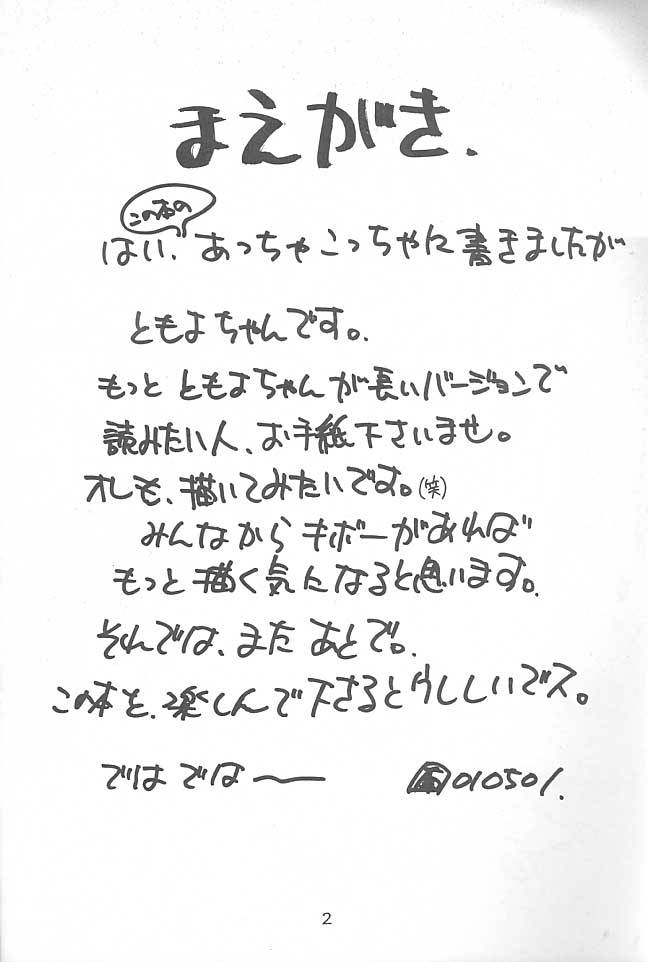 まえがき.
この本の
はい、あっちゃこっちゃに書きましたが
ともよちゃんです。
もっと ともよちゃんが長いバージョンで
読みたい人、お手紙下さいませ。
オレも、描いてみたいです。(笑)
みんなから キボーがあれば
もっと描く気になると思います。
それでは、また あとで。
この本を、楽しんで下さるとウレしいでス。
では では〜
010501.
2